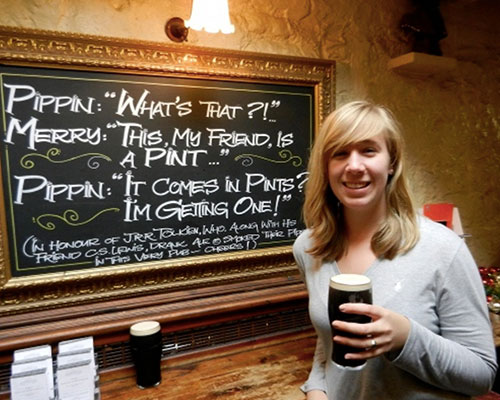 PIPPIN: "WHAT'S THAT?!"...
MERRY: "THIS, MY FRIEND, IS
A PINT..."
PIPPIN: "IT COMES IN PINTS?
I'M GETTING ONE!"
(IN HONOUR OF J.R.R. TOLKIEN, WHO, ALONG WITH HIS
FRIEND C.S. LEWIS, DRANK ALE & SMOKED THEIR
IN THIS VERY PUB - CHEERS!)